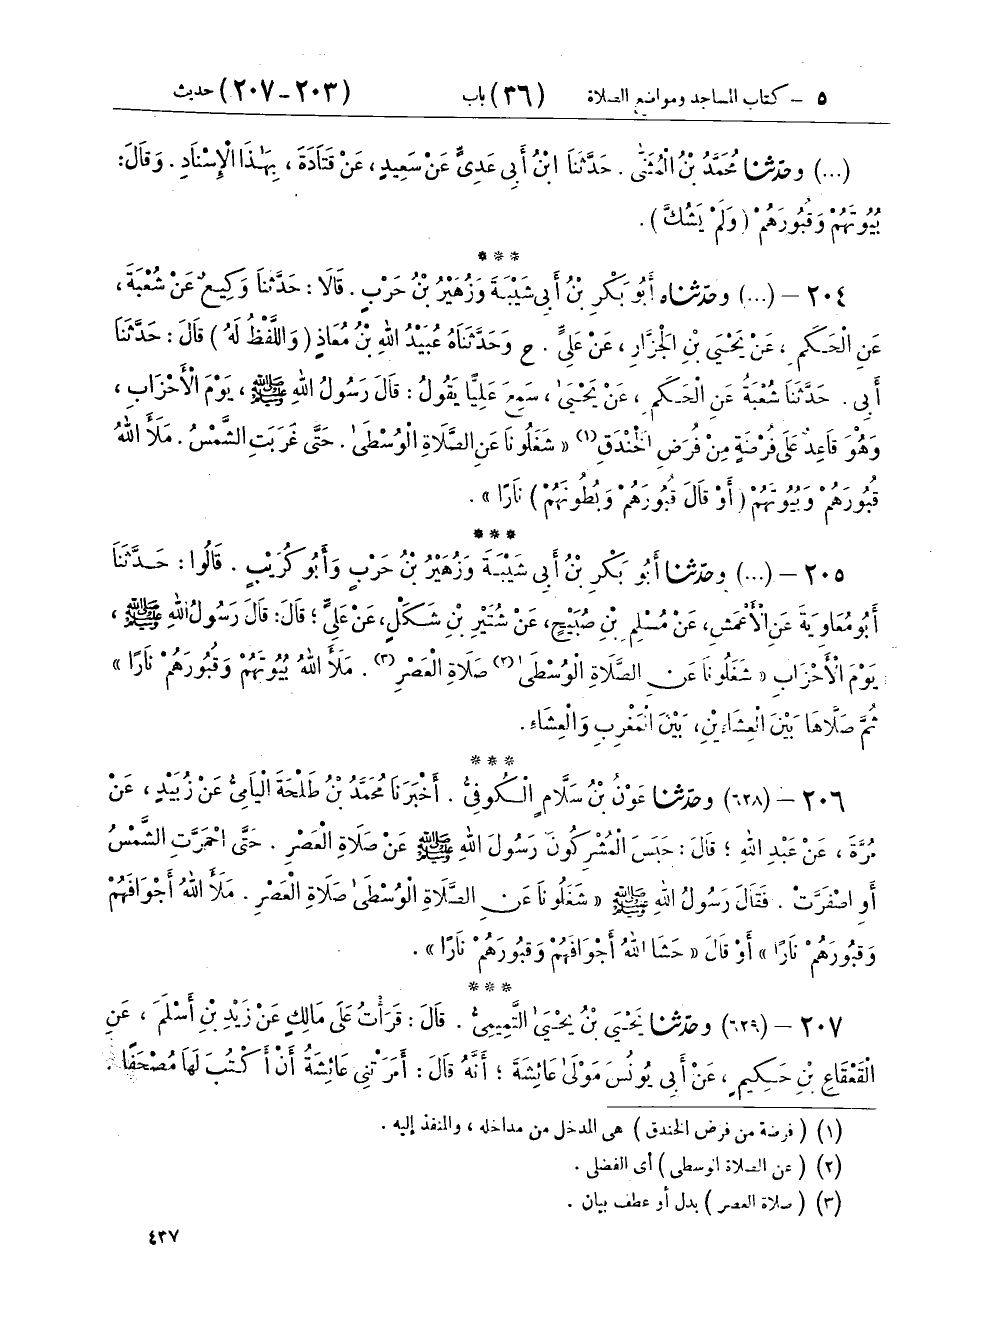 ٥ - كتاب المساجد ومواضع الصلاة (٣٦) باب (٢٠٣-٢٠٧) حديث
(...) وحدّثنا مُحَمَّدُ بْنُ الْمُثَنَّىٰ. حَدَّثَنَا ابْنُ أَبِي عَدِيٍّ عَنْ سَعِيدٍ، عَنْ قَتَادَةَ، بِهَٰذَا الْإِسْنَادِ. وَقَالَ:
بُيُوتَهُمْ وَقُبُورَهُمْ (وَلَمْ يَشُكَّ).
***
٢٠٤ - (...) وحدّثناه أَبُو بَكْرِ بْنُ أَبِي شَيْبَةَ وَزُهَيْرُ بْنُ حَرْبٍ. قَالَا: حَدَّثَنَا وَكِيعٌ عَنْ شُعْبَةَ،
عَنِ الْحَكَمِ، عَنْ يَحْيَىٰ بْنِ الْجَزَّارِ، عَنْ عَلِيٍّ. ح وَحَدَّثَنَاهُ عُبَيْدُ اللهِ بْنُ مُعَاذٍ (وَاللَّفْظُ لَهُ) قَالَ: حَدَّثَنَا
أَبِي. حَدَّثَنَا شُعْبَةُ عَنِ الْحَكَمِ، عَنْ يَحْيَىٰ، سَمِعَ عَلِيًّا يَقُولُ: قَالَ رَسُولُ اللهِ ﷺ، يَوْمَ الْأَحْزَابِ،
وَهُوَ قَاعِدٌ عَلَى فُرْضَةٍ مِنْ فُرَضِ الْخَنْدَقِ(١) « شَغَلُونَا عَنِ الصَّلَاةِ الْوُسْطَىٰ. حَتَّىٰ غَرَبَتِ الشَّمْسُ. مَلَأَ اللهُ
قُبُورَهُمْ وَبُيُوتَهُمْ (أَوْ قَالَ قُبُورَهُمْ وَبُطُونَهُمْ) نَارًا ».
***
٢٠٥ - (...) وحدّثنا أَبُو بَكْرِ بْنُ أَبِي شَيْبَةَ وَزُهَيْرُ بْنُ حَرْبٍ وَأَبُو كُرَيْبٍ. قَالُوا: حَدَّثَنَا
أَبُو مُعَاوِيَةَ عَنِ الْأَعْمَشِ، عَنْ مُسْلِمِ بْنِ صُبَيْحٍ، عَنْ شُتَيْرِ بْنِ شَكَلٍ، عَنْ عَلِيٍّ؛ قَالَ: قَالَ رَسُولُ اللهِ ﷺ،
يَوْمَ الْأَحْزَابِ « شَغَلُونَا عَنِ الصَّلَاةِ الْوُسْطَىٰ(٢) صَلَاةِ الْعَصْرِ(٣). مَلَأَ اللهُ بُيُوتَهُمْ وَقُبُورَهُمْ نَارًا »
ثُمَّ صَلَّاهَا بَيْنَ الْعِشَاءَيْنِ، بَيْنَ الْمَغْرِبِ وَالْعِشَاءِ.
***
٢٠٦ - (٦٢٨) وحدّثنا عَوْنُ بْنُ سَلَّامٍ الْكُوفِيُّ. أَخْبَرَنَا مُحَمَّدُ بْنُ طَلْحَةَ الْيَامِيُّ عَنْ زُبَيْدٍ، عَنْ
مُرَّةَ، عَنْ عَبْدِ اللهِ؛ قَالَ: حَبَسَ الْمُشْرِكُونَ رَسُولَ اللهِ ﷺ عَنْ صَلَاةِ الْعَصْرِ. حَتَّىٰ احْمَرَّتِ الشَّمْسُ
أَوِ اصْفَرَّتْ. فَقَالَ رَسُولُ اللهِ ﷺ « شَغَلُونَا عَنِ الصَّلَاةِ الْوُسْطَىٰ صَلَاةِ الْعَصْرِ. مَلَأَ اللهُ أَجْوَافَهُمْ
وَقُبُورَهُمْ نَارًا » أَوْ قَالَ « حَشَا اللهُ أَجْوَافَهُمْ وَقُبُورَهُمْ نَارًا ».
***
٢٠٧ - (٦٢٩) وحدّثنا يَحْيَىٰ بْنُ يَحْيَىٰ التَّمِيمِيُّ. قَالَ: قَرَأْتُ عَلَىٰ مَالِكٍ عَنْ زَيْدِ بْنِ أَسْلَمَ، عَنِ
الْقَعْقَاعِ بْنِ حَكِيمٍ، عَنْ أَبِي يُونُسَ مَوْلَىٰ عَائِشَةَ؛ أَنَّهُ قَالَ: أَمَرَتْنِي عَائِشَةُ أَنْ أَكْتُبَ لَهَا مُصْحَفًا.
(١) (فرضة من فرض الخندق) هي المدخل من مداخله، والمنفذ إليه.
(٢) (عن الصلاة الوسطى) أى الفضلى.
(٣) (صلاة العصر) بدل أو عطف بيان.
٤٣٧